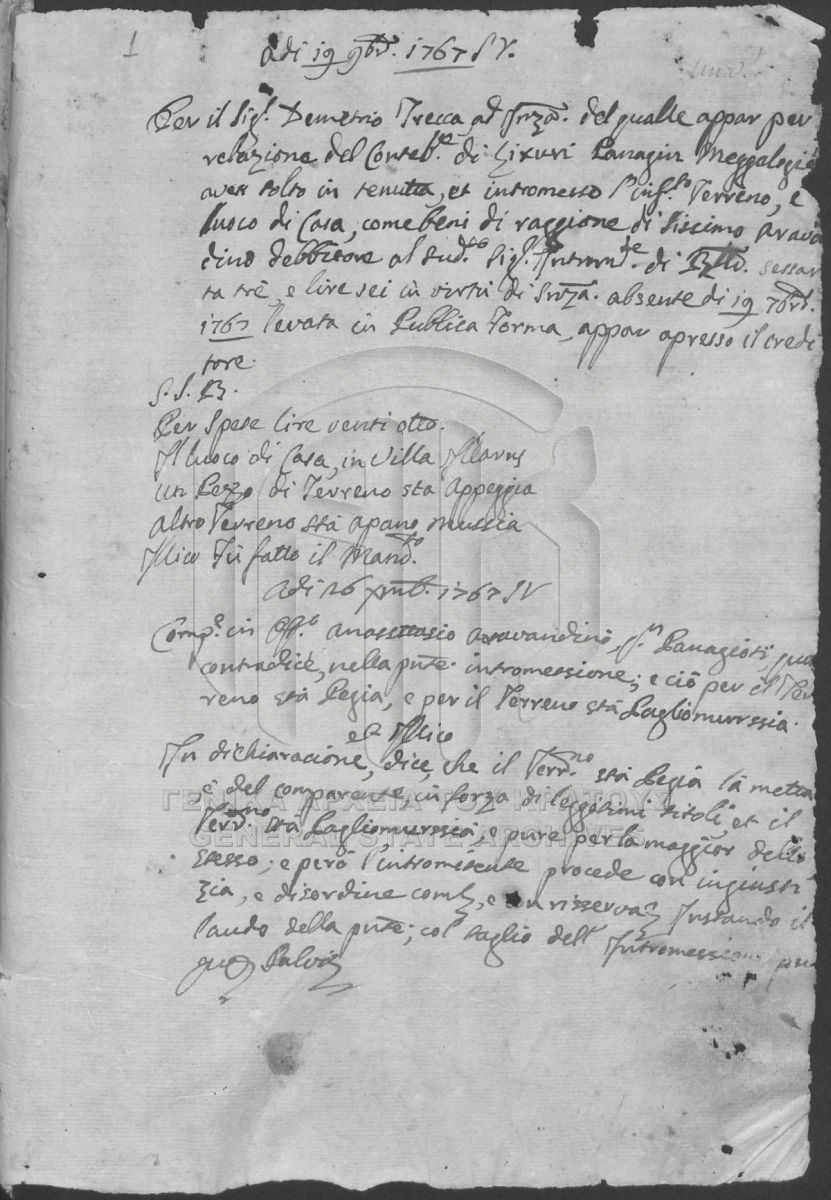 1
adi 19 9bre. 1767 S.V.
Per il Sigr. Demetrio Trecca, ad Inza. del qualle appar per
relazione del Conteb.e di Lixuri Panagin Meggalogi
aver tolto in tenutta, et intromesso l'infto. Terreno, e
luoco di Casa, come beni di raggione di Sissimo Arava
dino debbitore al sudto. Sigr. Intromte. di sessan
ta trè, e lire sei in virtù di Snza. absente di 19 7bre.
1767 levata in Publica Forma, appar apresso il credi
tore.
S. S. B.
Per Spese lire venti otto.
Il luoco di Casa, in Villa
Un Pezzo di Terreno stà Appeggia
Altro Terreno stà apano mussia
Illico Fù fatto il Mandto.
Adi 26 xmb. 1767 SV
Compe. in Offo. Anasttasio Aravandinò, Panagioti, qua
contradice, nella pnte. intromessione; e ciò per il Ter
reno stà Pegia, e per il Terreno stà Pagliomurssia.
et Illico
In dichiaracione, dice, che il Terrno. stà Pegia la mettà
è del comparente, in forza di leggitimi titoli, et il
Terrno. stà Pagliomurssia, e pure per la maggior dello
stesso; e però l'intromitente procede con ingiusti
zia, e disordine, e con risserva Instando il
laudo della pnte; col taglio dell' Intromession
ΓΕΝΙΚΑ ΑΡΧΕΙΑ ΤΟΥ ΚΡΑΤΟΥΣ
GENERAL STATE ARCHIVES